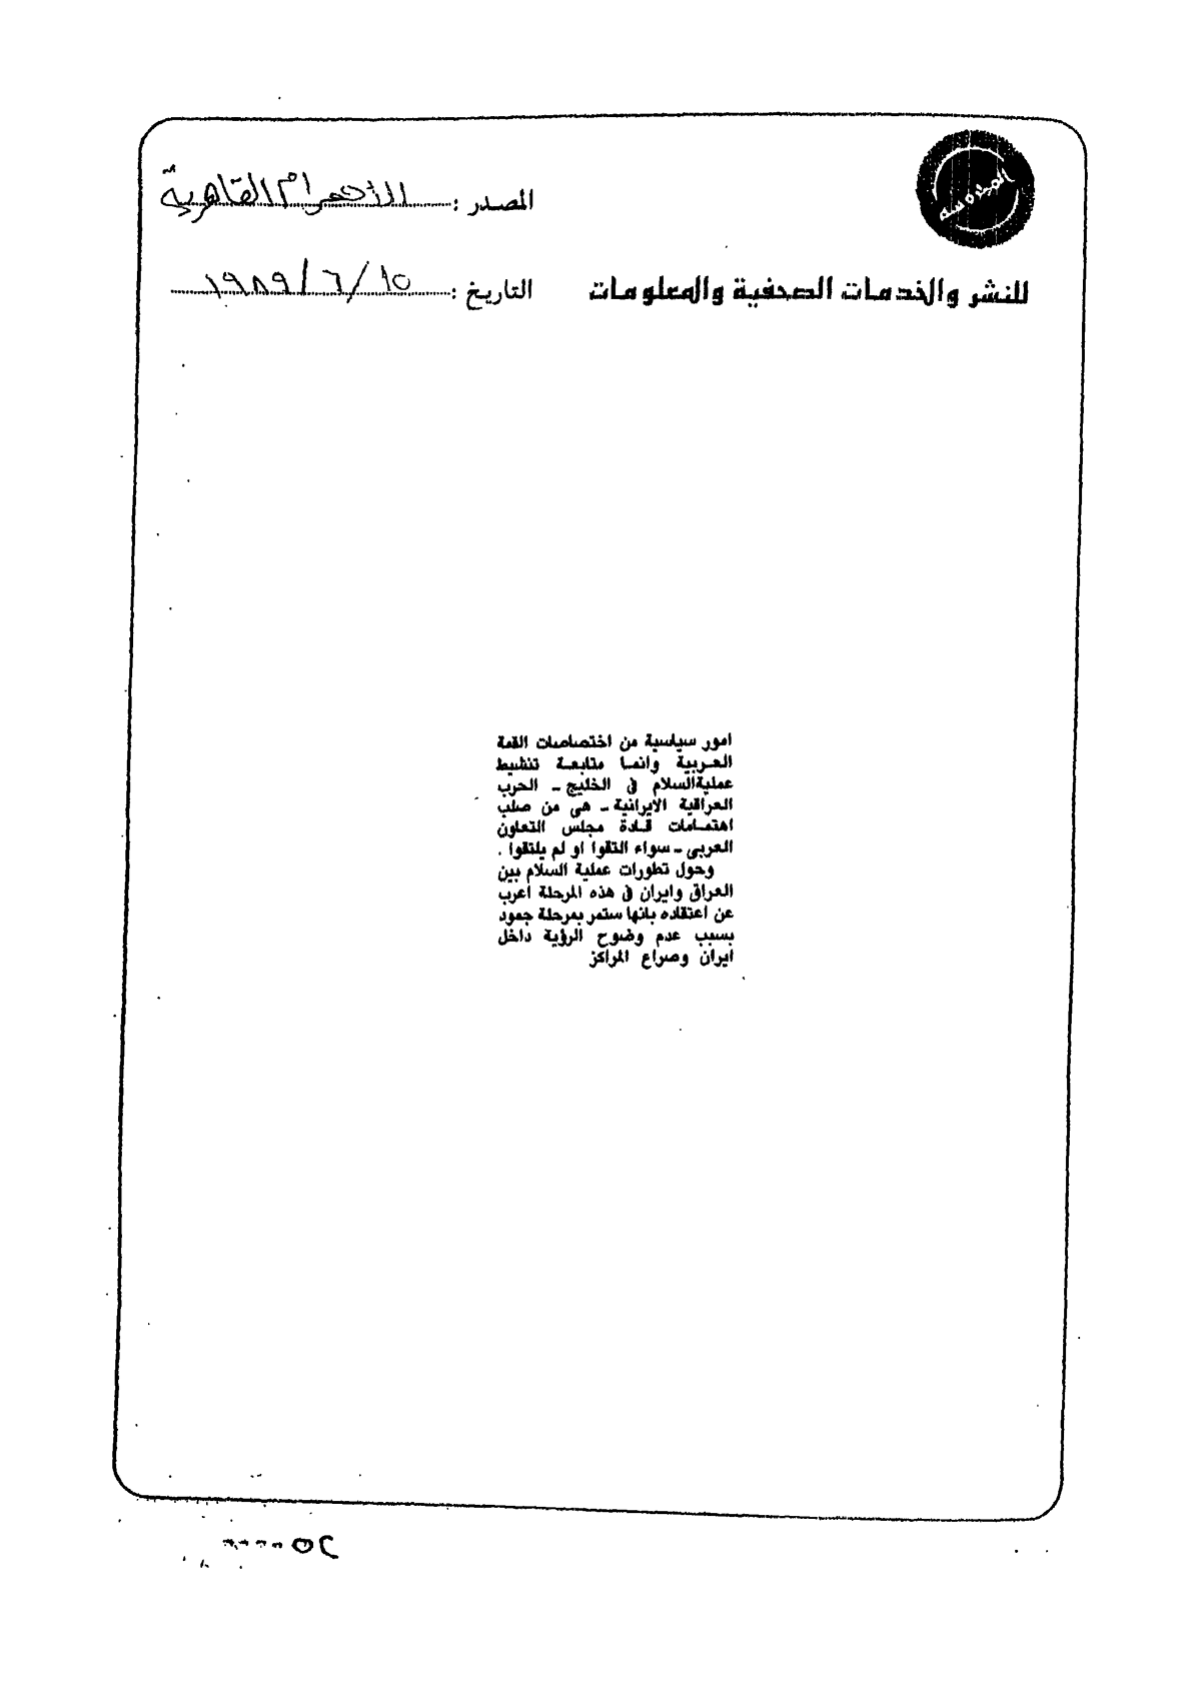 المصدر : الأهرام القاهرية
للنشر والخدمات الصحفية والمعلومات
التاريخ : ١٥/ ٦ / ١٩٨٩
امور سياسية من اختصاصات القمة
العربية وانما متابعة تنشيط
عملية السلام فى الخليج ـ الحرب
العراقية الايرانية ـ هى من صلب
اهتمامات قادة مجلس التعاون
العربى ـ سواء التقوا او لم يلتقوا .
وحول تطورات عملية السلام بين
العراق وايران فى هذه المرحلة اعرب
عن اعتقاده بانها ستمر بمرحلة جمود
بسبب عدم وضوح الرؤية داخل
ايران وصراع المراكز